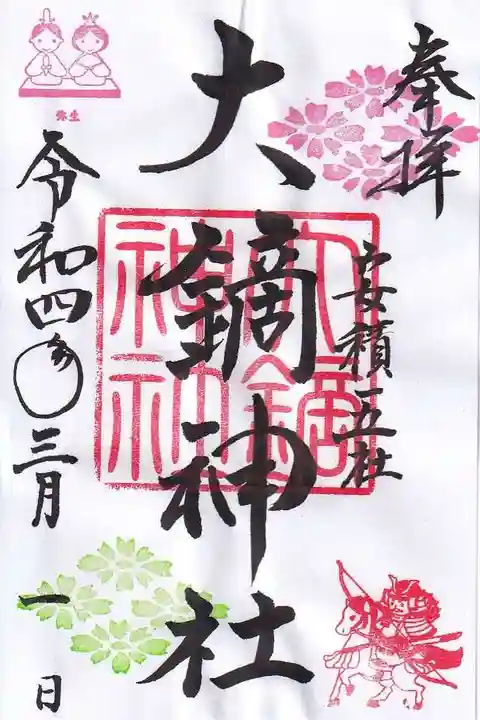 奉拝
安積三五社
大鏑神社
大鏑神社
令和四年三月一日
弥生